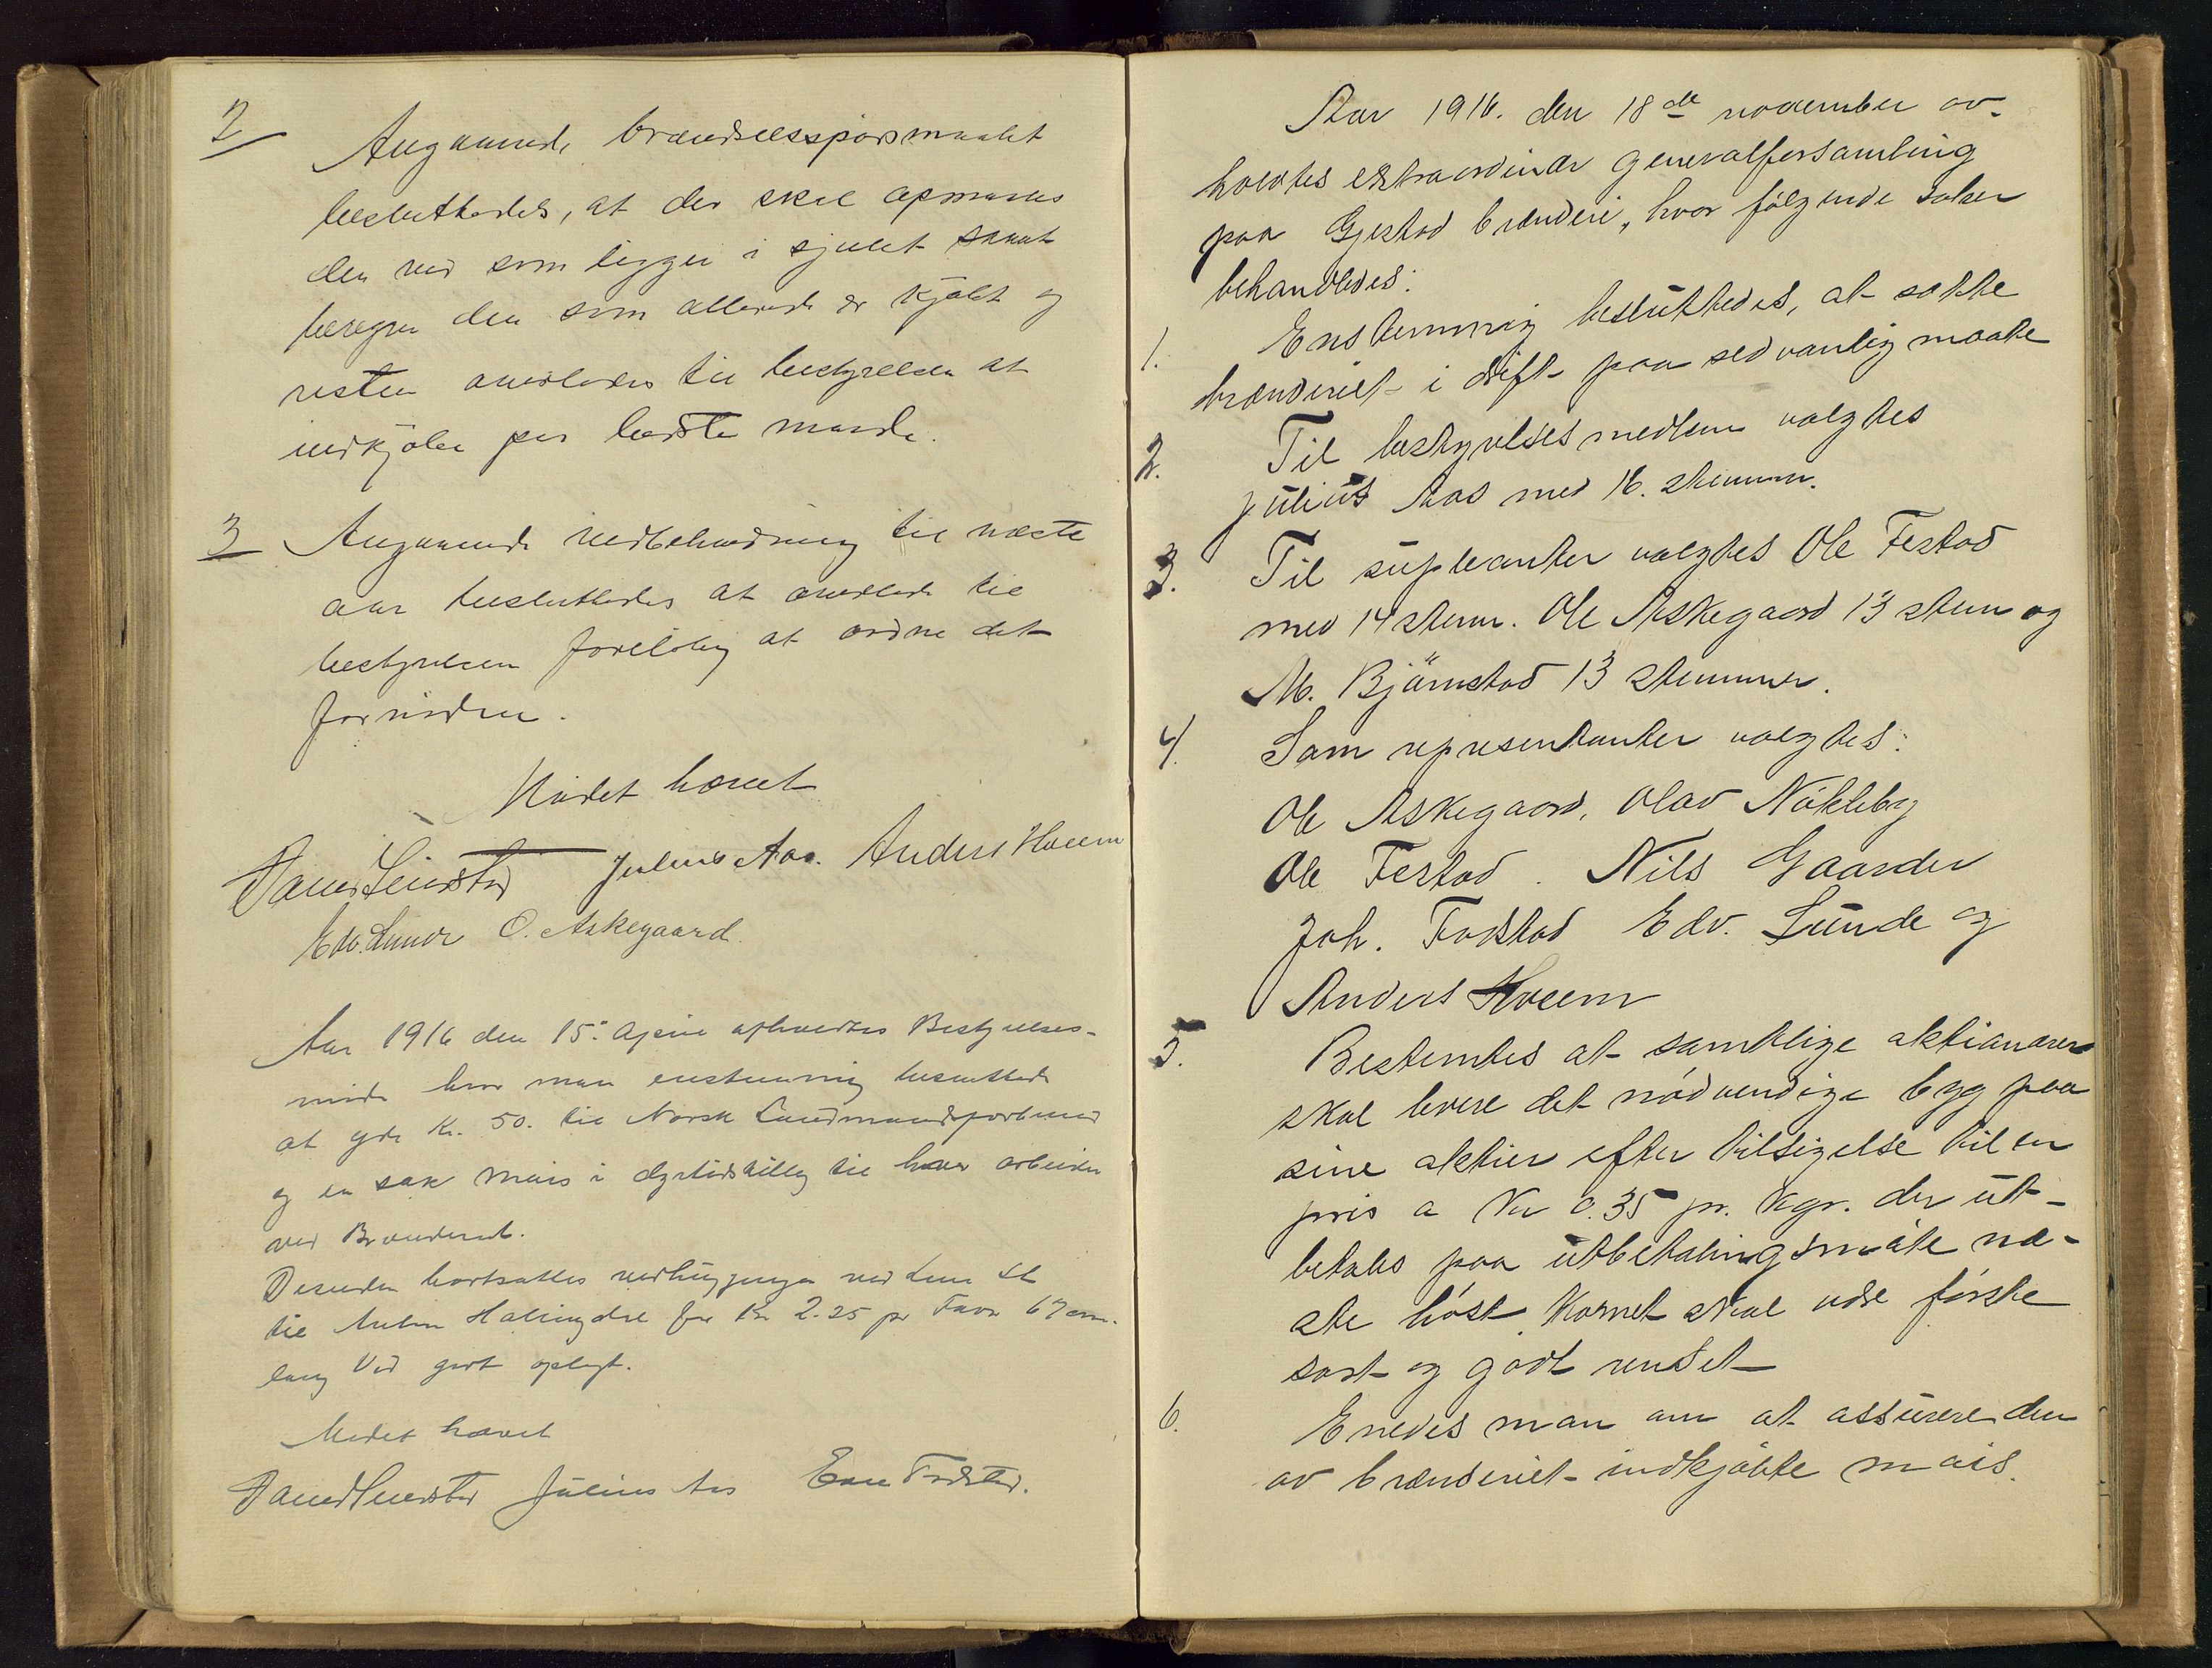 2
Angaaende brændselsspørsmaalet
besluttedes, at der skal opmaales
den ved som ligger i sjulet samt
beregne den som allerede er kjøbt og
resten overlades til bestyrelsen at
indkjøbe paa bedste maade.
3 Angaaende vedbehandling til næste
aar besluttedes at overlade til
bestyrelsen foreløbig at ordne det
fornødne.
Mødet hævet
Julius Aas. Anders Hveem
Edv. Lunde O. Askegaard.
Aar 1916 den 15. April afholdtes Bestyrelses-
møde hvor man enstemmig besluttede
at yde Kr. 50. til Norsk Landmandsforbund
og en sæk Mais i dyrtidstillæg til hver arbeider
ved Brænderiet.
Desuden bortsattes vedhugningen
til Anton Halingdal for Kr 2.25 pr Favn 67 cm.
lang Ved godt oplagt.
Mødet hævet
Julius Aas Even Fodstad.
Aar 1916. den 18de november av-
holdtes ekstraordinær generalforsamling
paa Gjestad brænderi, hvor følgende saker
behandledes:
1. Enstemmig besluttedes, at sætte
brænderiet i drift paa sedvanlig maate
2. Til bestyrelsesmedlem valgtes
Julius Aas med 16. stemmer.
3. Til supleanter valgtes Ole Festad
med 14 stem. Ole Askegaard 13 stem og
M. Bjørnstad 13 stemmer.
4. Som representanter valgtes:
Ole Askegaard, Olav Nökleby
Ole Festad. Nils Gaarder
Joh. Fodstad Edv. Lunde og
Anders Hveem
5. Bestemtes at samtlige aktionærer
skal levere det nødvendige byg paa
sine aktier efter tilsigelse til en
pris a Kr 0.35 pr. kgr. der ut-
betales paa utbetalingsmøte næ-
ste høst. Kornet skal være første
sort og godt renset
6. Enedes man om at assurere den
av brænderiet indkjøpte mais.